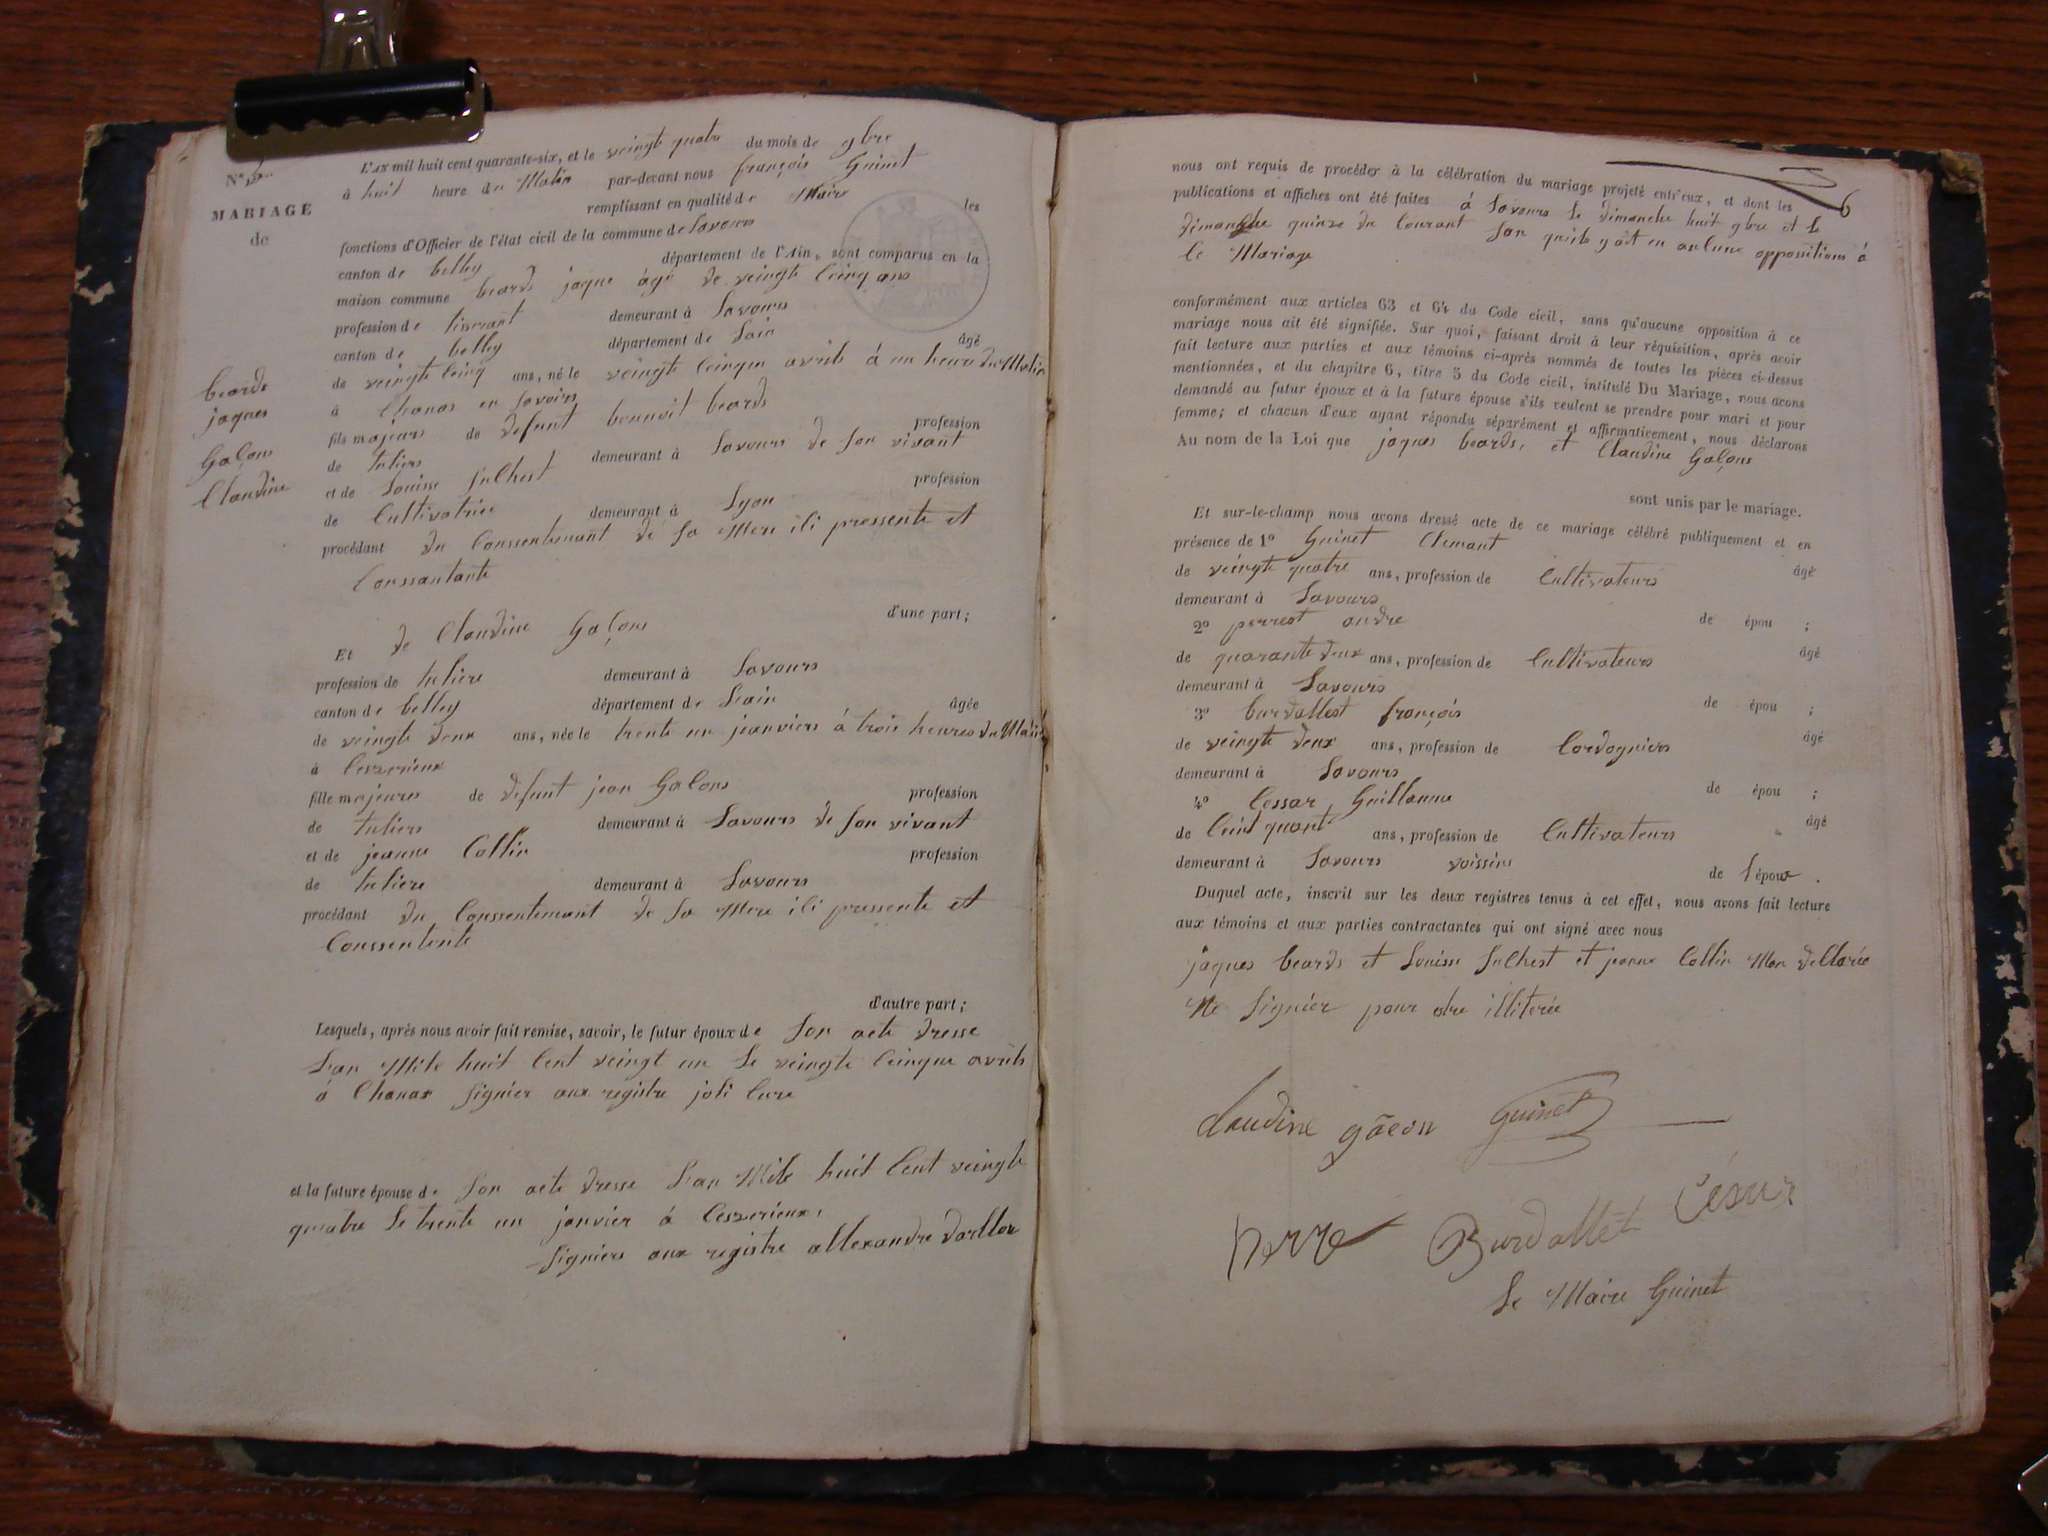 N°
L'AN mil huit cent quarante-six, et le veingt quatr du mois de 9bre
à huit heure du Matin par-devant nous françois Guinet
MARIAGE
remplissant en qualité de Maire les
de
fonctions d'Officier de l'état civil de la commune de Savours
canton de belley département de l'Ain, sont comparus en la
maison commune beards jaque âgé de veingt Cinq ans
profession de tiserant demeurant à Savours
canton de belley département de Lain âgé
de veingt Cinq ans, né le veingte Cinque avrils á un heure du Matin
beards
à Chanas en Savoies
jaques
fils majeurs de defunt bennoit beards profession
Galons
de tuliers demeurant à Savours de son vivant
Claudine
et de Louisse Julhest profession
de Cultivatrice demeurant à Lyon
procédant du Conssentemant de sa Mere ili pressente et
Conssantante
d'une part;
Et de Claudine Galons
profession de tuliere demeurant à Savours
canton de belley département de Lain âgée
de veingte deux ans, née le trente un jeanviers á trois heures du Matin
à Ceszerieux
fille majeures de defunt jean Galons profession
de tuliers demeurant à Savours de son vivant
et de jeanne Collin profession
de tuliere demeurant à Savours
procédant du Conssentemant de sa Mere ili pressente et
Conssentente
d'autre part;
Lesquels, après nous avoir fait remise, savoir, le futur époux de Son acte dresse
Lan Mile huit Cent veingt un Le veingte Cinque avrils
á Chanas signier aux registre joli Cure
et la future épouse de Son acte dresse Lan Mile huit Cent veingte
quatre Le trente un janvier á Ceszerieux,
signiers aux registre allexandre
6
nous ont requis de procéder à la célébration du mariage projeté entr'eux, et dont les
publications et affiches ont été faites á Savours Le dimanche huit 9bre et le
dimanche quinze du Courant san quils y áit eu aucune oppositions á
Ce Mariage
conformément aux articles 63 et 64 du Code civil, sans qu'aucune opposition à ce
mariage nous ait été signifiée. Sur quoi, faisant droit à leur réquisition, après avoir
fait lecture aux parties et aux témoins ci-après nommés de toutes les pièces ci-dessus
mentionnées, et du chapitre 6, titre 5 du Code civil, intitulé Du Mariage, nous avons
demandé au futur époux et à la future épouse s'ils veulent se prendre pour mari et pour
femme; et chacun d'eux ayant répondu séparément et affirmativement, nous déclarons
Au nom de la Loi que jaques beards, et Claudine Galons
sont unis par le mariage.
Et sur-le-champ nous avons dressé acte de ce mariage célébré publiquement et en
présence de 1° Guinet Clemant âgé
de veingte quatre ans, profession de Cultivateurs
demeurant à Savours de épou ;
2° perrest andre âgé
de quarante deux ans, profession de Cultivateurs
demeurant à Savours de épou ;
3° burdallest françois âgé
de veingte deux ans, profession de Cordogniers
demeurant à Savours de épou ;
4° Cessar, Guillaume âgé
de Cinquant ans, profession de Cultivateurs
demeurant à Savours voissins de lépoux.
Duquel acte, inscrit sur les deux registres tenus à cet effet, nous avons fait lecture
aux témoins et aux parties contractantes qui ont signé avec nous
jaques beards et Louisse Julhest et jeanne Collin Mon dellarée
Ne Signier pour etre illiterée
Claudine gâcon Guinet
perre Burdallet César
Le Maire Guinet